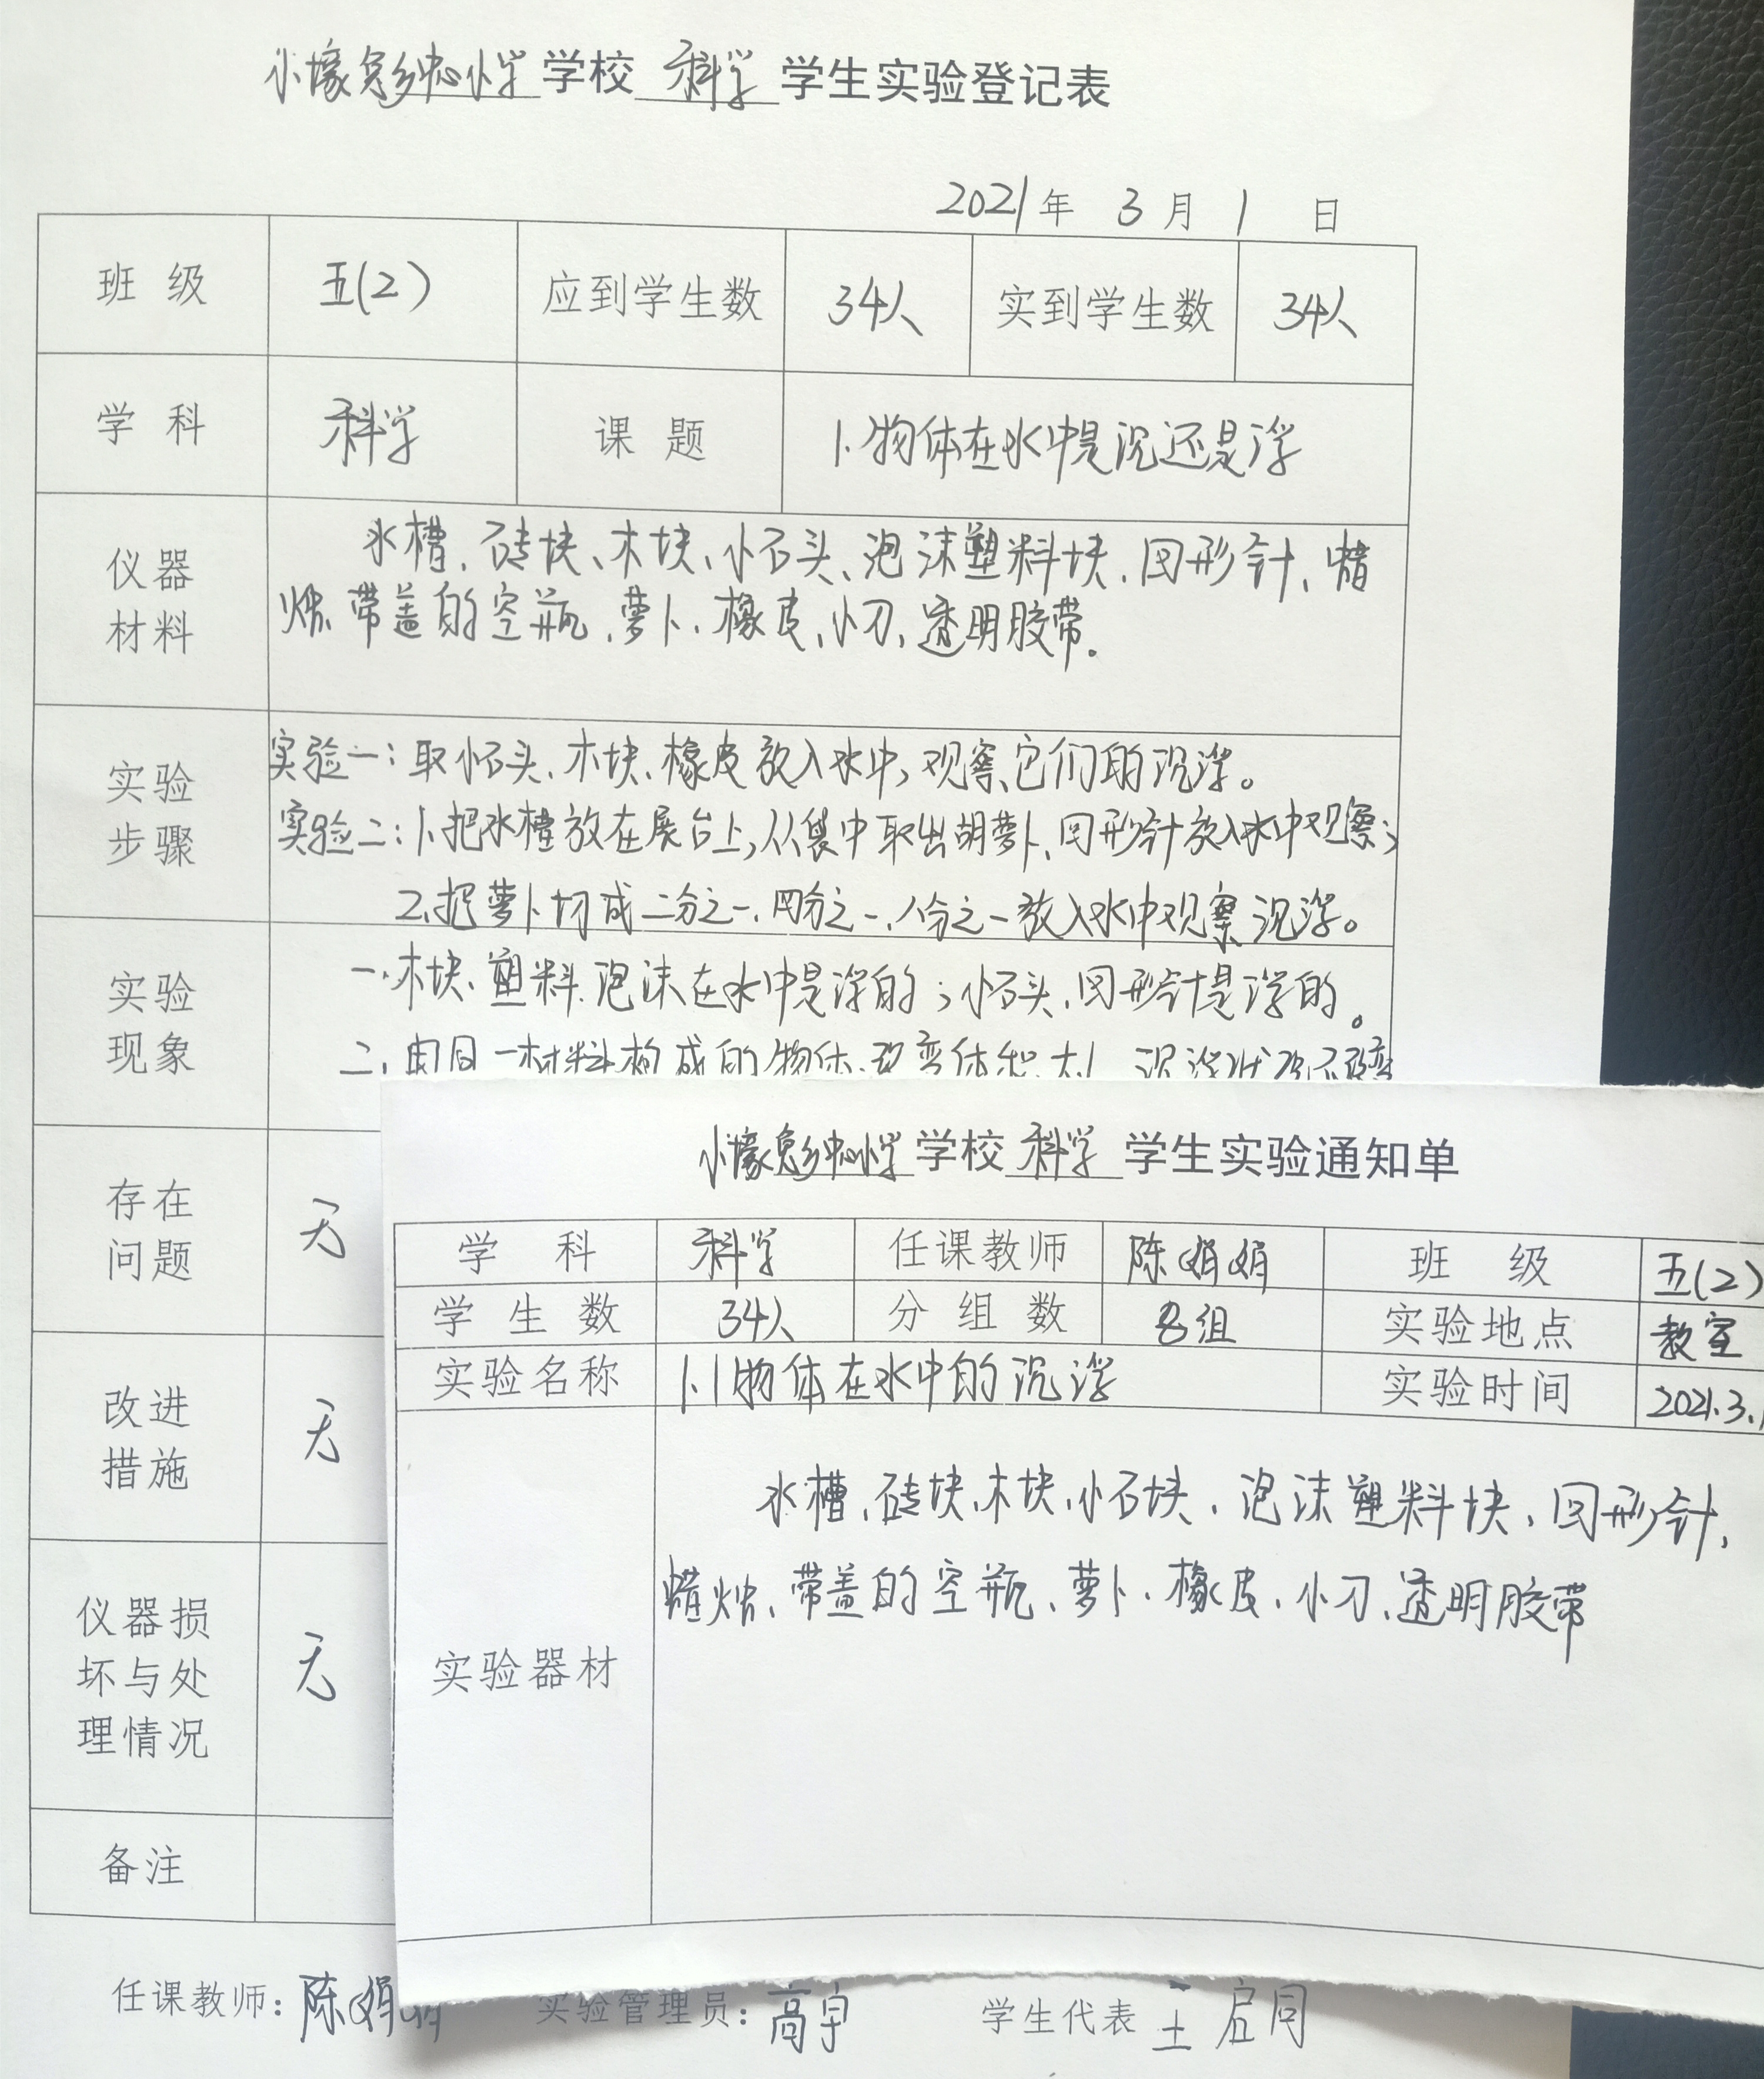 小壕兔乡中心小学学校 科学 学生实验登记表
2021年 3月 1 日
班 级 五(2) 应到学生数 34人 实到学生数 34人
学 科 科学 课 题 1.物体在水中是沉还是浮
仪器材料
水槽、砖块、木块、小石头、泡沫塑料块、回形针、蜡
烛、带盖的空瓶、萝卜、橡皮、小刀、透明胶带。
实验步骤
实验一：取小石头、木块、橡皮放入水中，观察它们的沉浮。
实验二：1.把水槽放在展台上，从袋中取出胡萝卜、回形针放入水中观察；
2.把萝卜切成二分之一、四分之一、八分之一放入水中观察沉浮。
实验现象
一、木块、塑料泡沫在水中是浮的；小石头、回形针是浮的。
二、由同一材料构成的物体，改变体积大小，沉浮状况不改变
存在问题 无
改进措施 无
仪器损坏与处理情况 无
备注
任课教师：陈娟娟 实验管理员：高宇 学生代表 王启同
小壕兔乡中心小学学校 科学 学生实验通知单
学 科 科学 任课教师 陈娟娟 班 级 五(2)
学 生 数 34人 分 组 数 8组 实验地点 教室
实验名称 1.1物体在水中的沉浮 实验时间 2021.3.1
实验器材
水槽、砖块、木块、小石块、泡沫塑料块、回形针、
蜡烛、带盖的空瓶、萝卜、橡皮、小刀、透明胶带